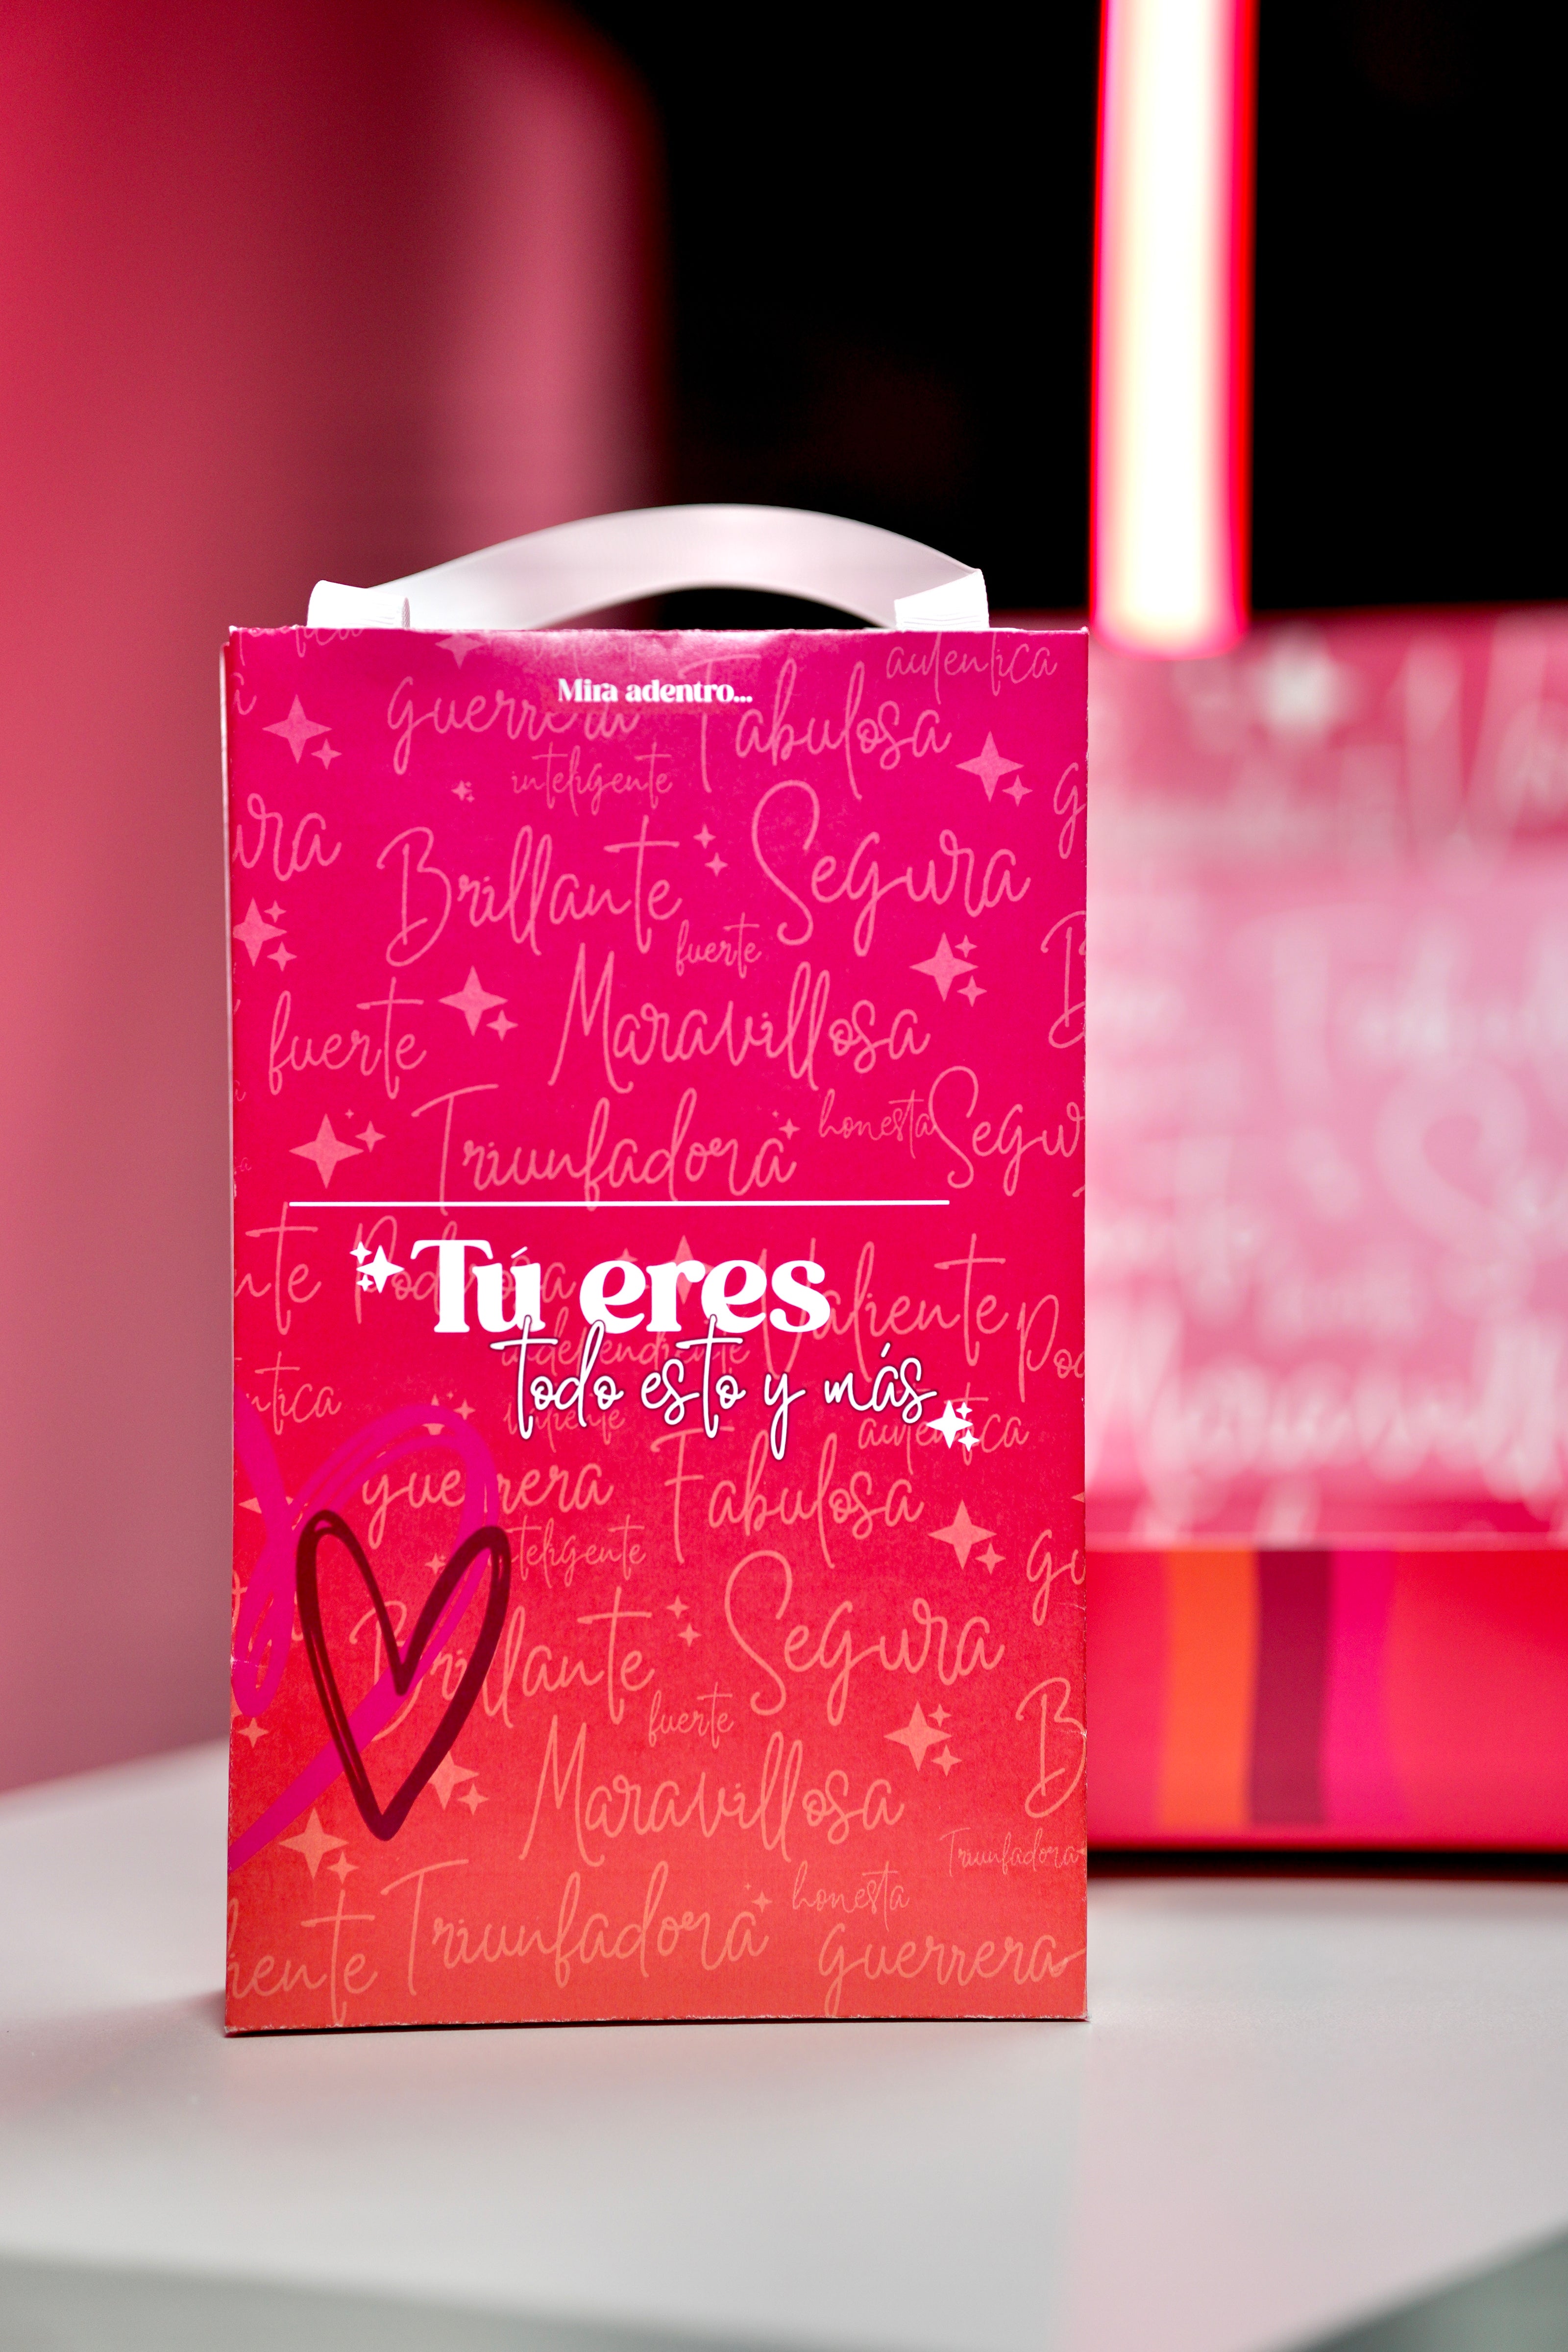 autentica
Mira adentro...
guerrera Fabulosa
inteligente
Brillante Segura
fuerte
fuerte Maravillosa
Triunfadora honesta Segu
Tú eres
Poderosa Valiente
independiente
todo esto y más
autentica
guerrera Fabulosa
inteligente
Brillante Segura
fuerte
Maravillosa
Triunfadora
Triunfadora honesta
guerrera